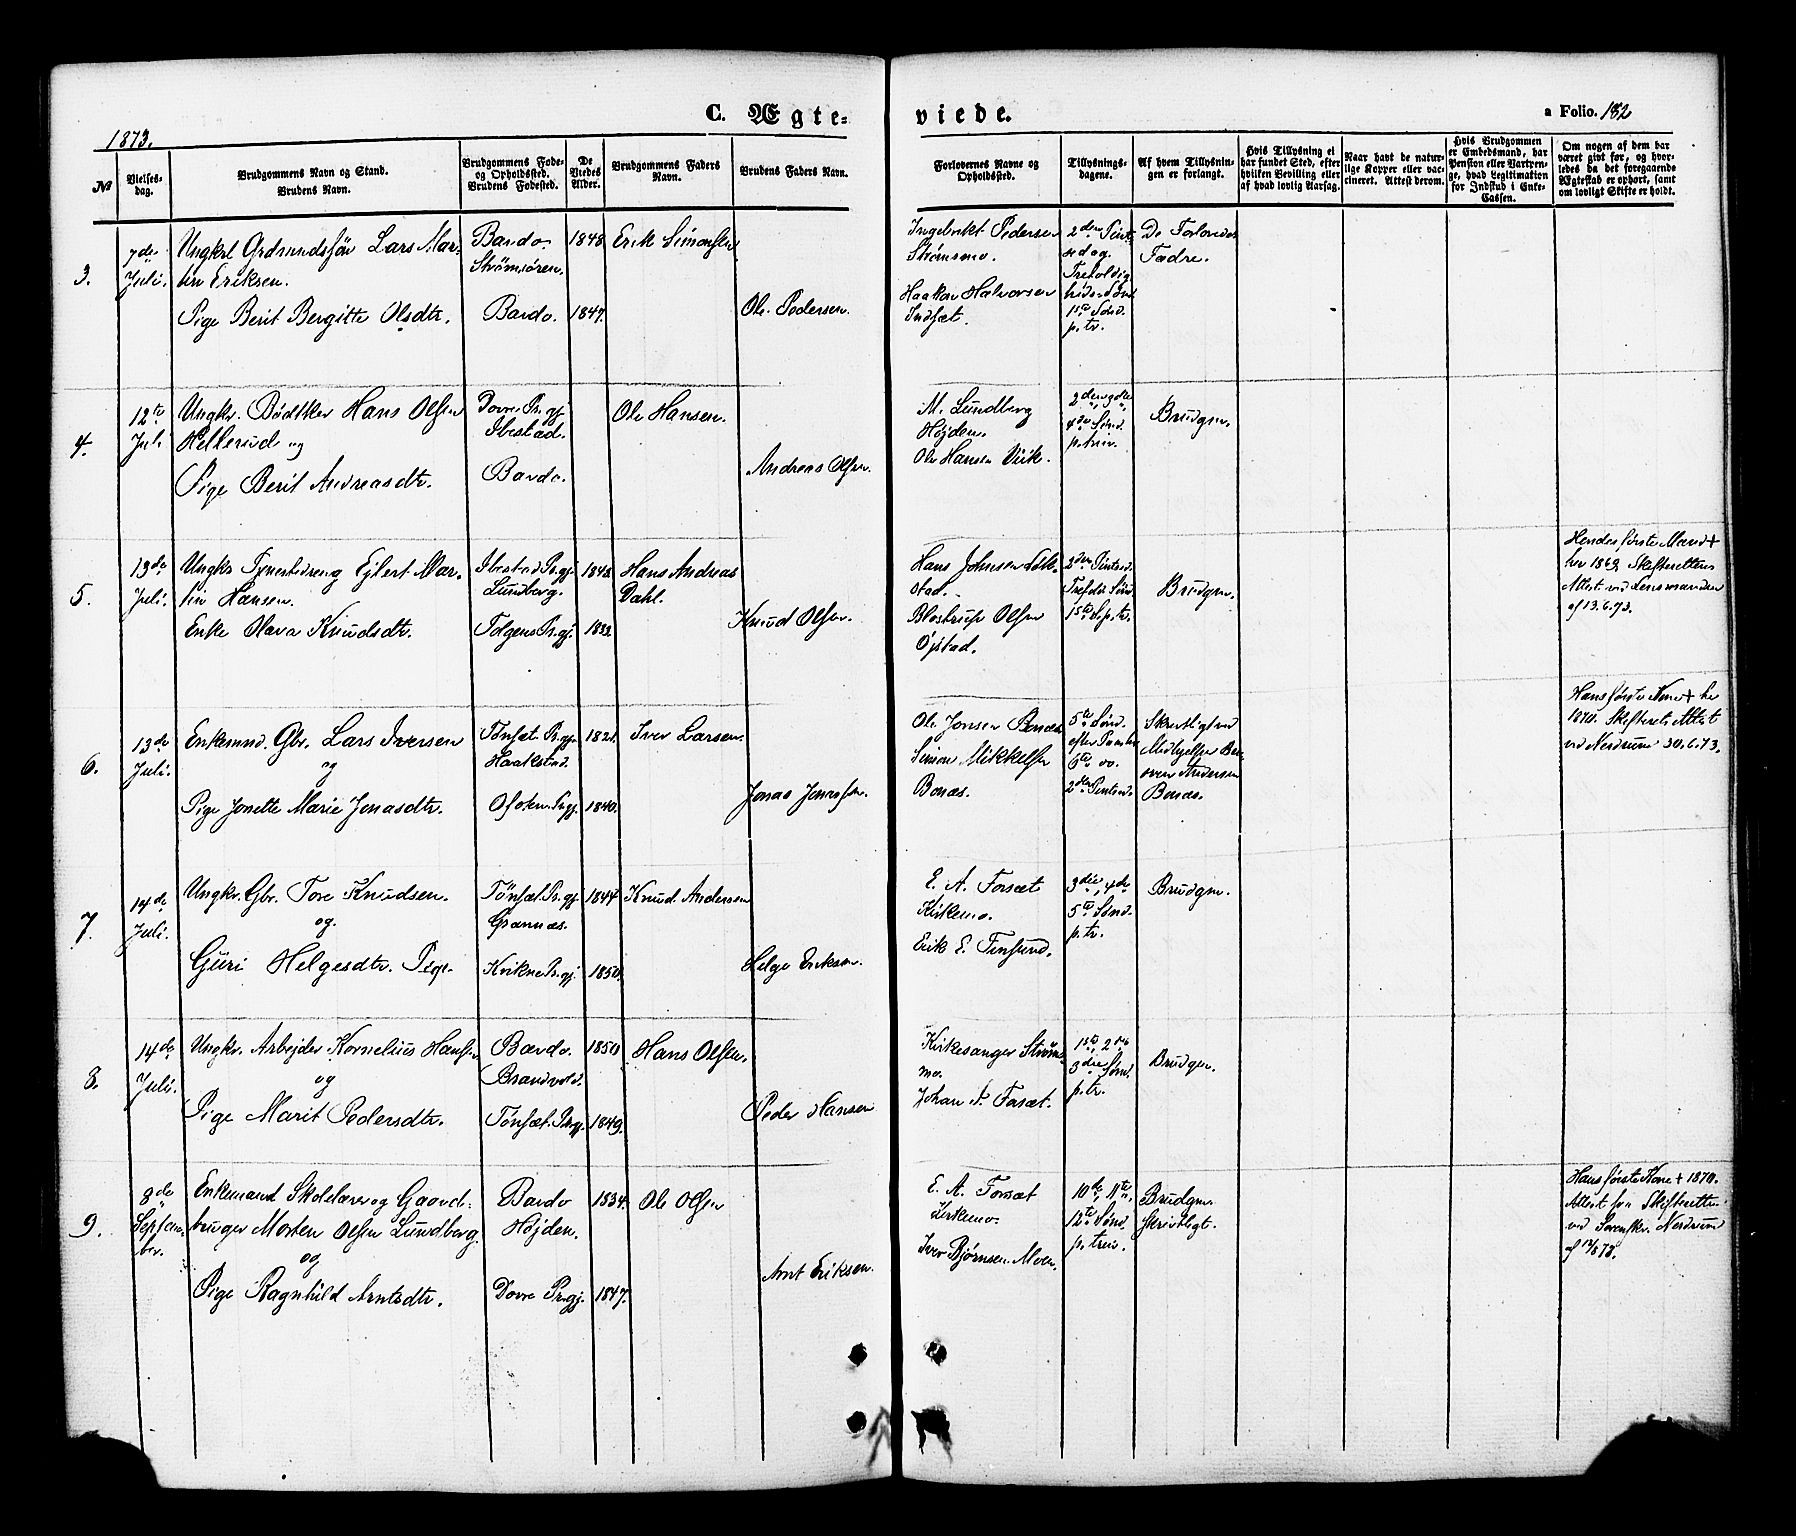 C. Ægte=
viede.
a Folio. 182
1873.
№
Vielses-
dag.
Brudgommens Navn og Stand.
Brudens Navn.
Brudgommens Føde-
og Opholdssted.
Brudens Fødested.
De
Viedes
Alder.
Brudgommens Faders
Navn.
Brudens Faders Navn.
Forlovernes Navne og
Opholdssted.
Tillysnings-
dagene.
Af hvem Tillysnin-
gen er forlangt.
Hvis Tillysning ei
har fundet Sted, efter
hvilken Bevilling eller
af hvad lovlig Aarsag.
Naar havt de natur-
lige Kopper eller vac-
cineret. Attest derom.
Hvis Brudgommen
er Embedsmand, har
Pension eller Vartpen-
ge, hvad Legitimation
for Indskud i Enke-
Cassen.
Om nogen af dem har
været givt før, og hvor-
ledes da det foregaaende
Ægteskab er ophørt, samt
om lovligt Skifte er holdt.
3.
7de
Juli.
Ungkrl Grdmandssøn Lars Mar-
tin Eriksen.
Pige Berit Bergitte Olsdtr.
Bardo
Strømsøren.
Bardo.
1848
1847.
Erik Simonsen
Ole Pedersen.
Ingebrikt Pedersen
Strømsmo.
Haakon Halvorsen
Indsæt.
2den Pint-
sed og
Trefoldig
heds Sønd
1ste Sønd.
p. tr.
De Forlovedes
Fædre.
4.
12te
Juli
Ungkr. Bødtker Hans Olsen
Hellerud og
Pige Berit Andreasdtr.
Dovre Pr.gj.
Ibestad.
Bardo.
Ole Hansen.
Andreas Olsen.
M. Lundberg
Højden.
Ole Hansen Viik.
4de Sønd.
p. trin.
Brudgm.
5.
13de
Juli.
Ungkr Tjenestedreng Ejlert Mar-
tin Hansen.
Enke Olava Knudsdtr.
Ibestad Pr.gj.
Lundberg.
Tolgens Pr.gj.
1848
1833.
Hans Andreas
Dahl.
Knud Olsen.
Hans Johnsen
stad.
Blostrup Olsen
Øjstad.
2den Pintsd.
Trefold. Sønd
1ste S. p. tr.
Brudgm.
Hendes første Mand +
her 1869 Skifterettens
Attest ved Lensmanden
af 13.6.73.
6.
13de
Juli.
Enkemnd. Gbr. Lars Iversen
og
Pige Jonette Marie Jonasdtr.
Tønset Pr.gj.
Haakstad.
Ofoten Pr.gj.
1821.
1840.
Iver Larsen.
Jonas Jonassen.
Ole Jonsen Bonæs
Simon Mikkelsen
Bonæs.
5te Sønd.
efter Paaske
6te do.
2den Pintsd.
Skriftligt ved
Andersen
Bonæs.
Hans første Kone + her
1870. Skifterets Attest
ved Nordrum 30.6.73.
7.
14de
Juli.
Ungkr. Gbr. Tore Knudsen.
og
Guri Helgesdtr. Pige
Tønset. Pr.gj.
Grannæs.
Kvikne Pr.gj.
1844
1850.
Knud Andersen
Helge Eriksen.
E. A. Forsæt
Kirkemo.
Erik E. Finsund.
3die, 4de
5te Sønd.
p. tr.
Brudgm.
8.
14de
Juli.
Ungkr. Arbejder Kornelius Hansen
og
Pige Marit Pedersdtr.
Bardo.
Brandvold.
Tønset. Pr.gj.
1850
1849.
Hans Olsen.
Peder Hansen
Kirkesanger Strøms
mo.
Johan A. Forsæt.
1ste, 2den
3die Sønd.
p. tr.
Brudgm.
9.
8de
Septem-
ber.
Enkemand Skolelærer og Gaard-
bruger Morten Olsen Lundberg.
og
Pige Ragnhild Arntsdtr.
Bardo
Højden.
Dovre Pr.gj.
1834.
1847.
Ole Olsen
Arnt Eriksen.
E. A. Forsæt
Kirkemo.
Iver Bjørnsen Moen.
10de, 11te,
12te Sønd.
p. trin.
Brudgm.
skriftligt.
Hans første Kone + 1870.
Attest fra Skifteretten
ved Sorenskr. Nordrum